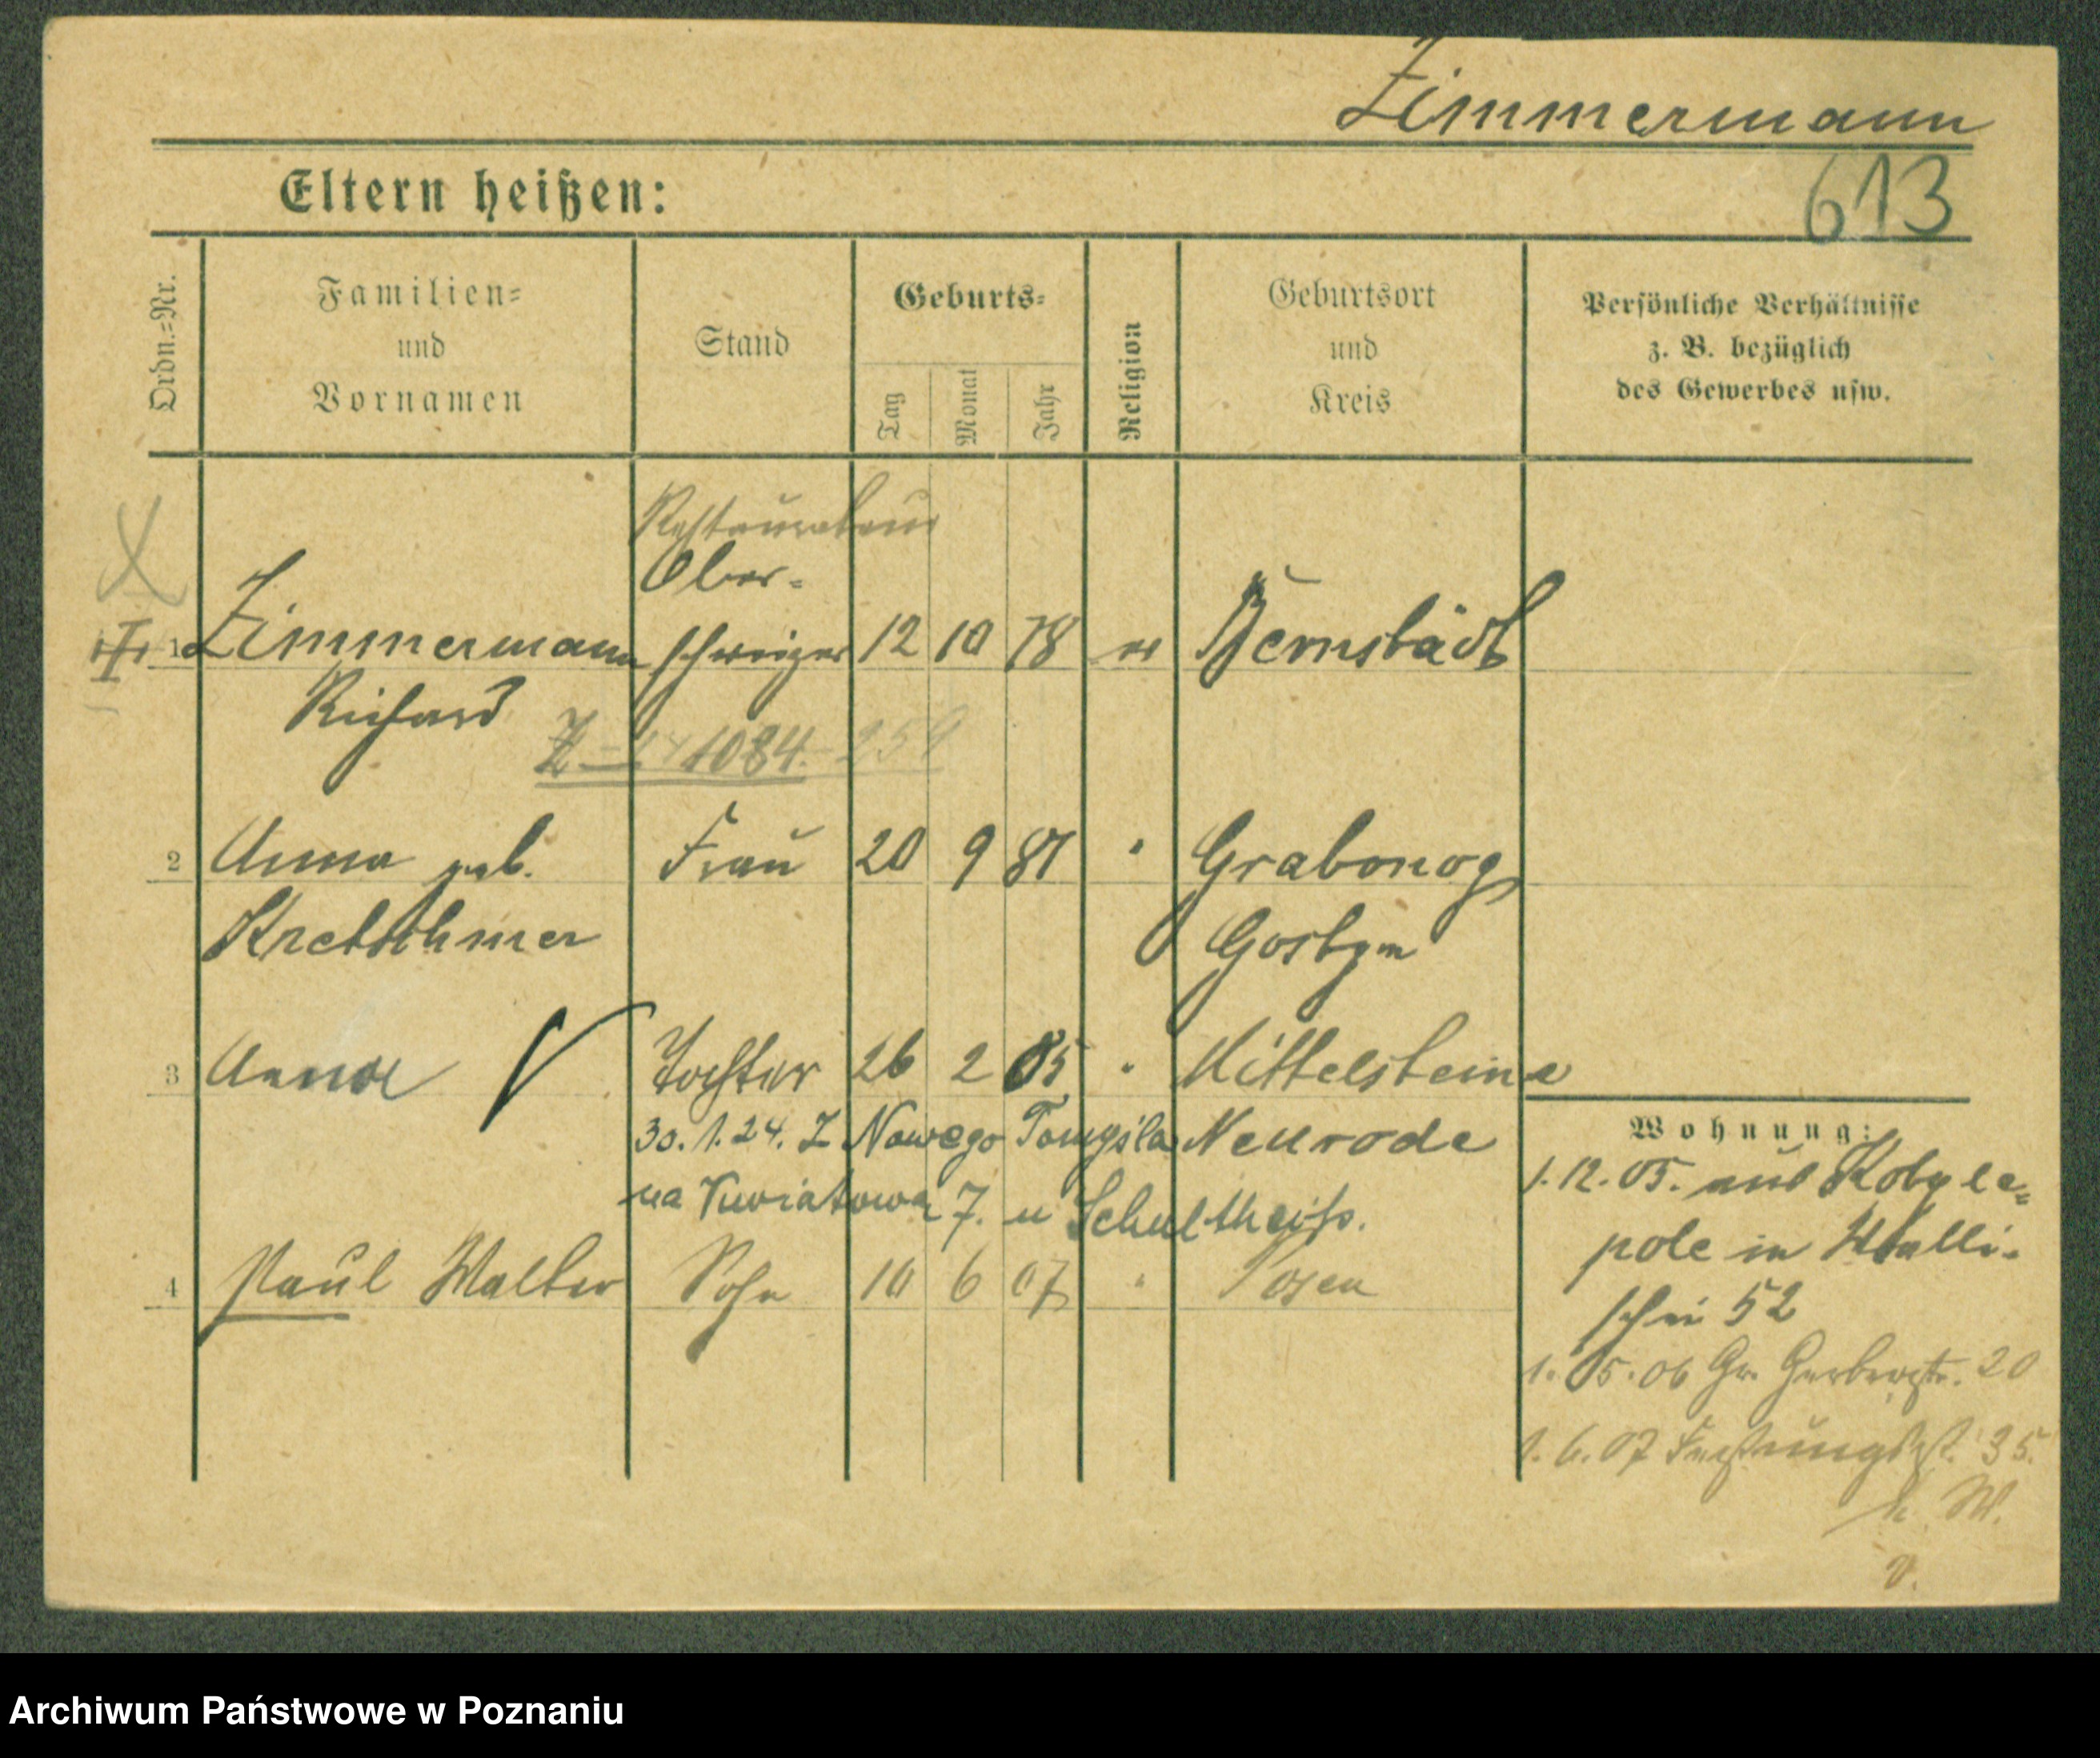 Zimmermann
613
Eltern heißen:
Ordn.=Nr.
Familien=
und
Vornamen
Stand
Geburts=
Tag
Monat
Jahr
Religion
Geburtsort
und
Kreis
Persönliche Verhältnisse
z. B. bezüglich
des Gewerbes usw.
Restaurateur
Ober-
1 Zimmermann schweizer 12 10 78 ev Bernstädt
Richard
1084
2 Anna geb. Frau 20 9 81 " Grabonog
Kretschmer Gostyn
3 Anna Tochter 26 2 05 " Mittelsteine
30. 1. 24. Z Nowego Tomyśla Neurode
na Kwiatową 7. u Schultheiss.
4 Paul Walter Sohn 10 6 07 " Posen
Wohnung:
1. 12. 05. aus Kobyle=
pole in Walli-
schei 52
1. 05. 06 Gr. Gerberstr. 20
1. 6. 07 Festungsst. 35.
W.
v.
Archiwum Państwowe w Poznaniu